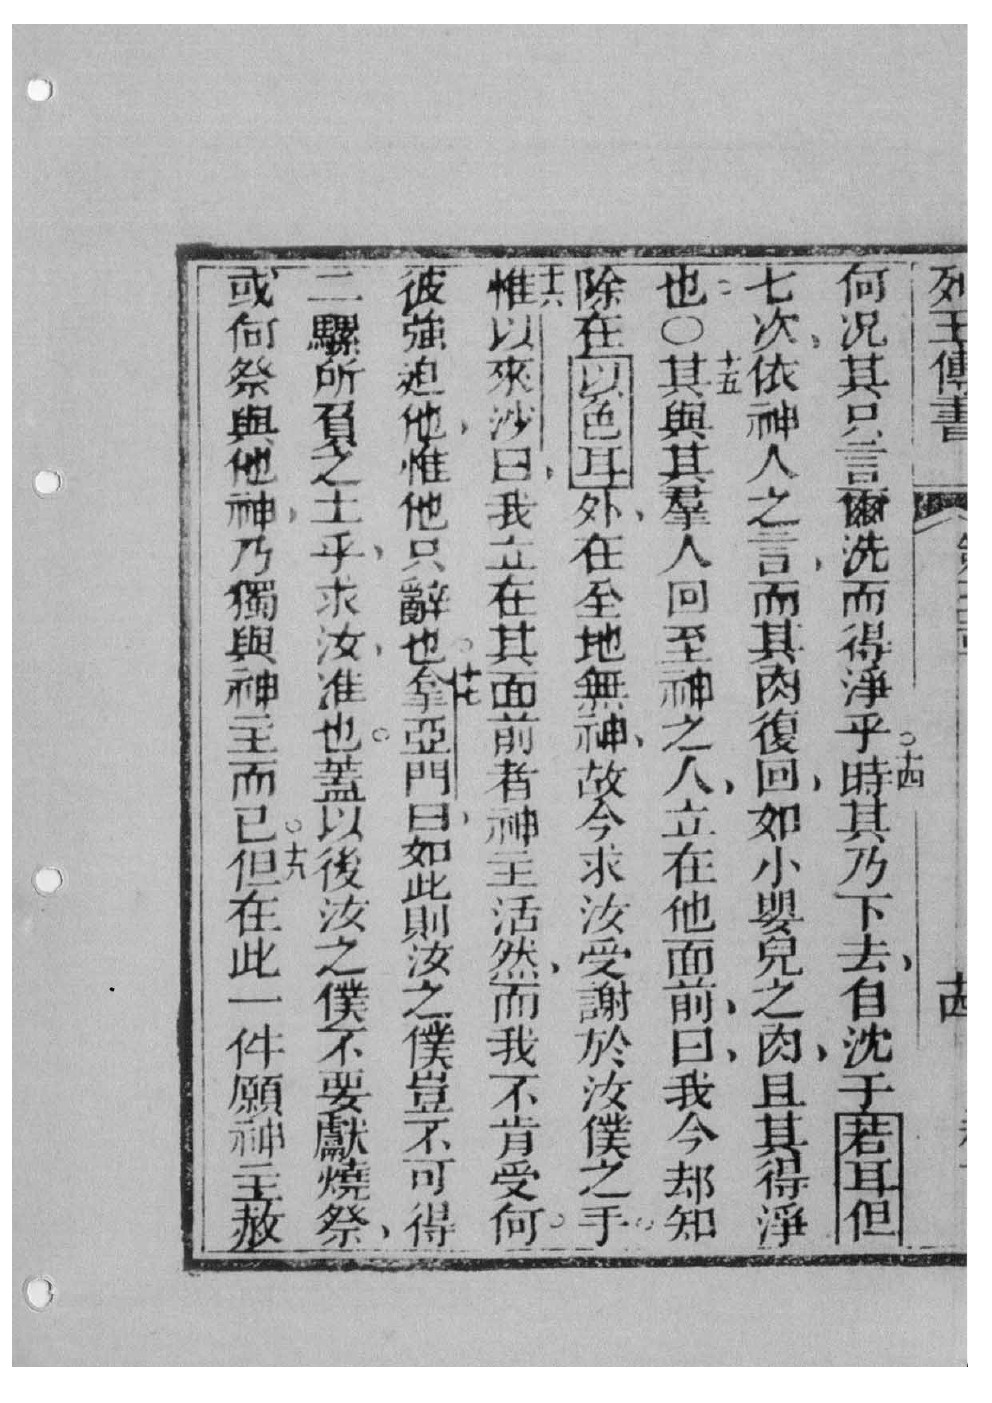 列王傳書
何況其只言爾洗而得淨乎。十四時其乃下去，自沈于若耳但
七次，依神人之言，而其肉復回，如小嬰兒之肉，且其得淨
也○十五其與其羣人回至神之人，立在他面前，曰，我今却知
除在以色耳外，在至地無神，故今求汝受謝於汝僕之手。
十六惟以來沙曰，我立在其面前者神主活然，而我不肯受何。
彼強迫他，惟他只辭也。十七拿亞門曰，如此則汝之僕豈不可得
二騾所負之土乎，求汝，准也。蓋以後汝之僕不要獻燒祭，
或何祭與他神，乃獨與神主而已。十八但在此一件願神主赦